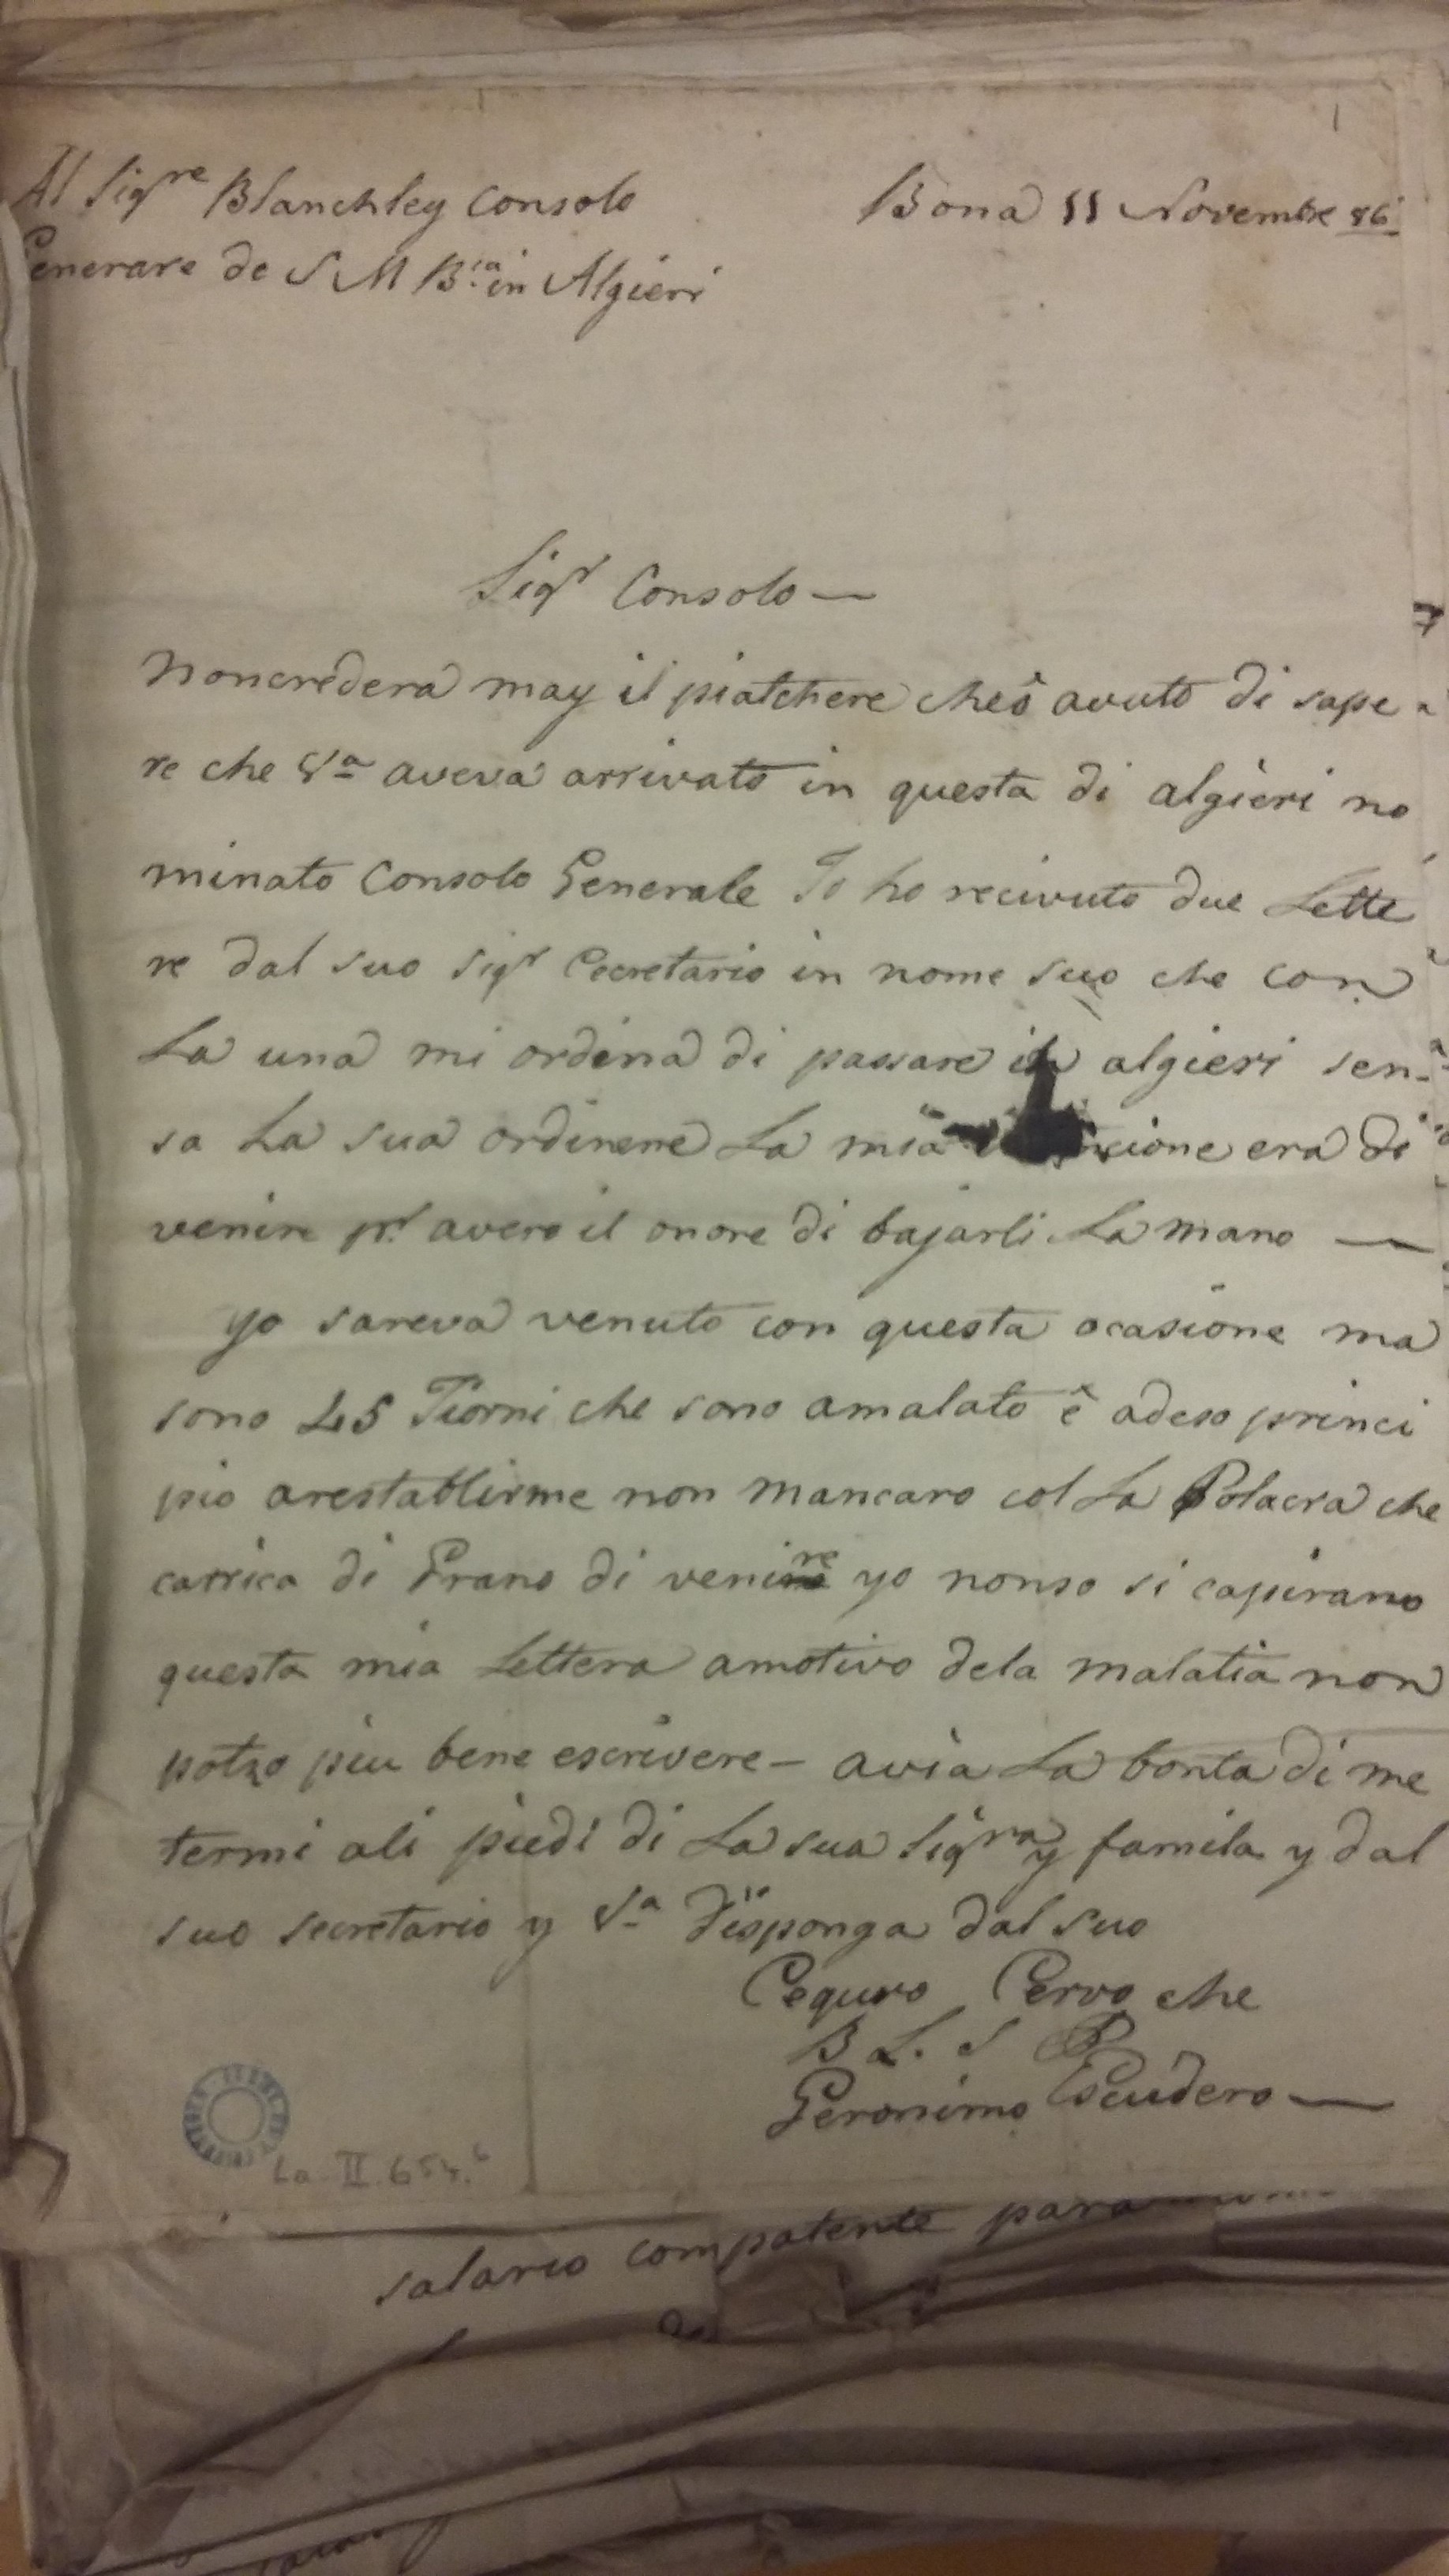 Al Sig.re Blanchley Consolo Bona 11 Novembre 86
Generare de S M B.ca in Algieri
Sig.r Consolo —
noncredera may il piatchere cheô avuto di sape-
re che V.a aveva arrivato in questa di algieri no
minato Consolo Generale Jo ho recivuto due Lette
re dal suo Sig.r Cecretario in nome suo che con
La una mi ordina di passare in algieri sen-
sa La sua ordinene La mia ncione era di
venire p.r avero il onore di bajarli La mano —
yo sareva venuto con questa ocasione ma
sono 45 Jiorni che sono amalato ê adeso princi
pio arestablirme non mancaro col La Polacra che
carrica di Grano di venire yo nonso si capirano
questa mia Lettera amotivo dela malatia non
potzo piu bene escrivere — avia La bonta di me
termi ali piedi di La sua Sig.ra y famila y dal
suo secretario y V.a disponga dal suo
Ceguro Cervo che
B L. S P
Geronimo Escudero —
La II. 654.6
salario compatente para